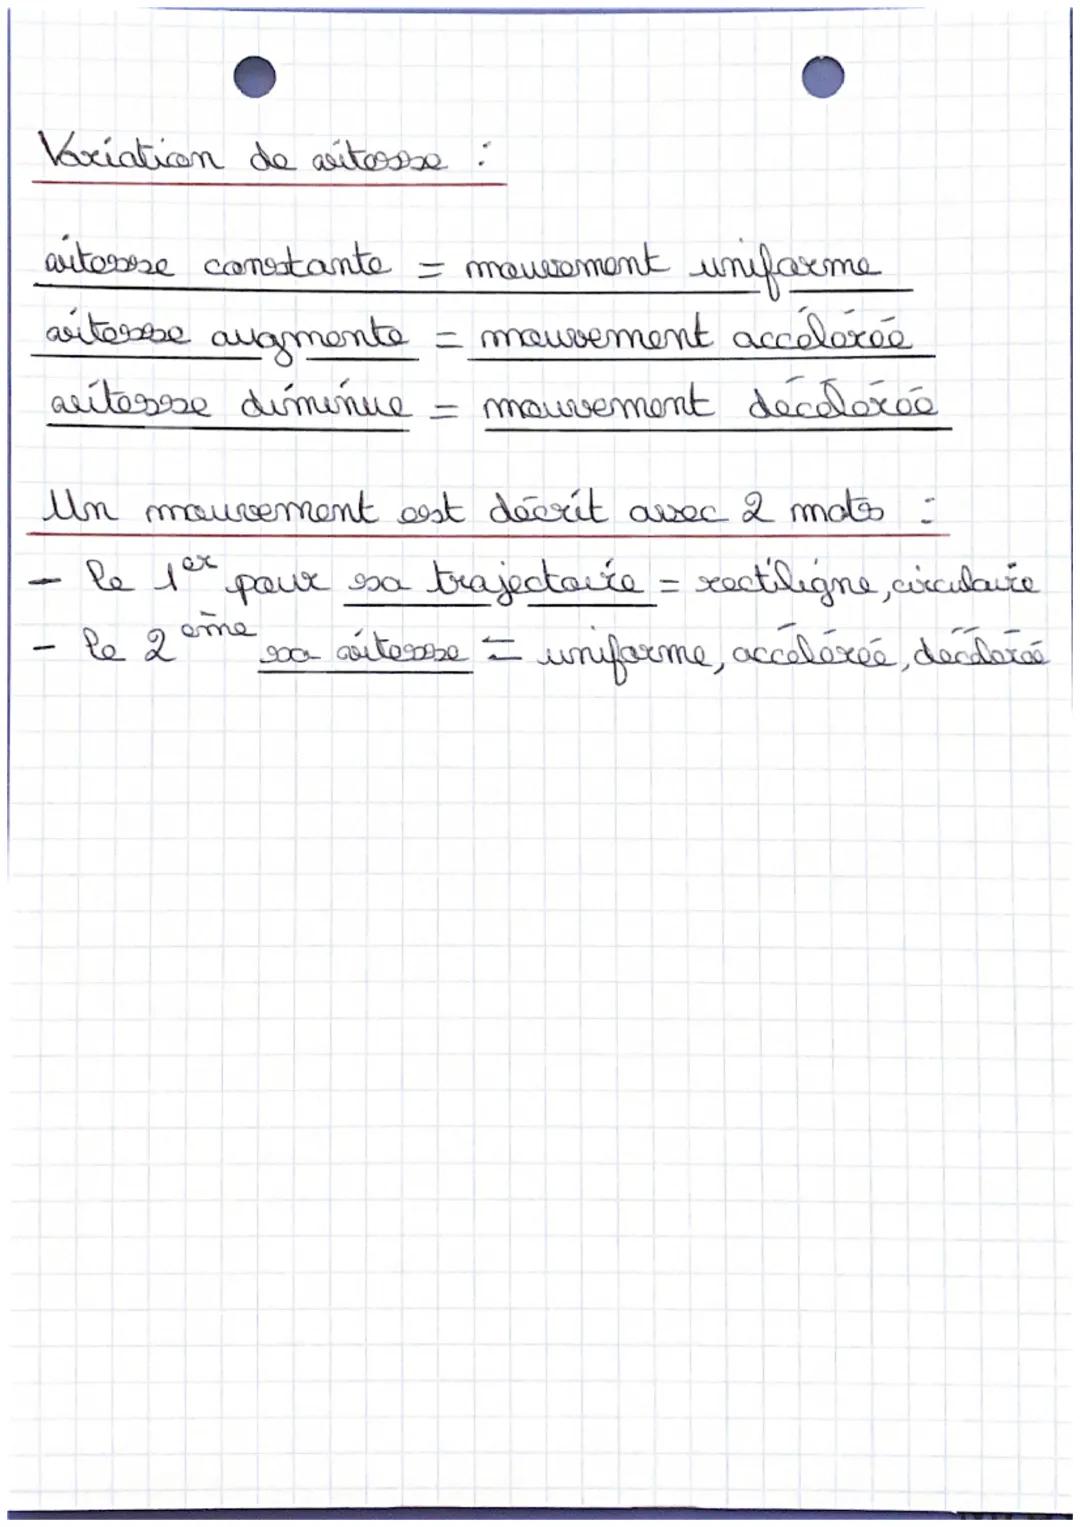 Variation de vitesse :
vitesse constante = mouvement uniforme
vitesse augmente = mouvement accélérée
vitesse diminue = mouvement décélérée
Un mouvement est décrit avec 2 mots :
- le 1er pour sa trajectoire = rectiligne, circulaire
- le 2ème sa vitesse = uniforme, accélérée, décélérée